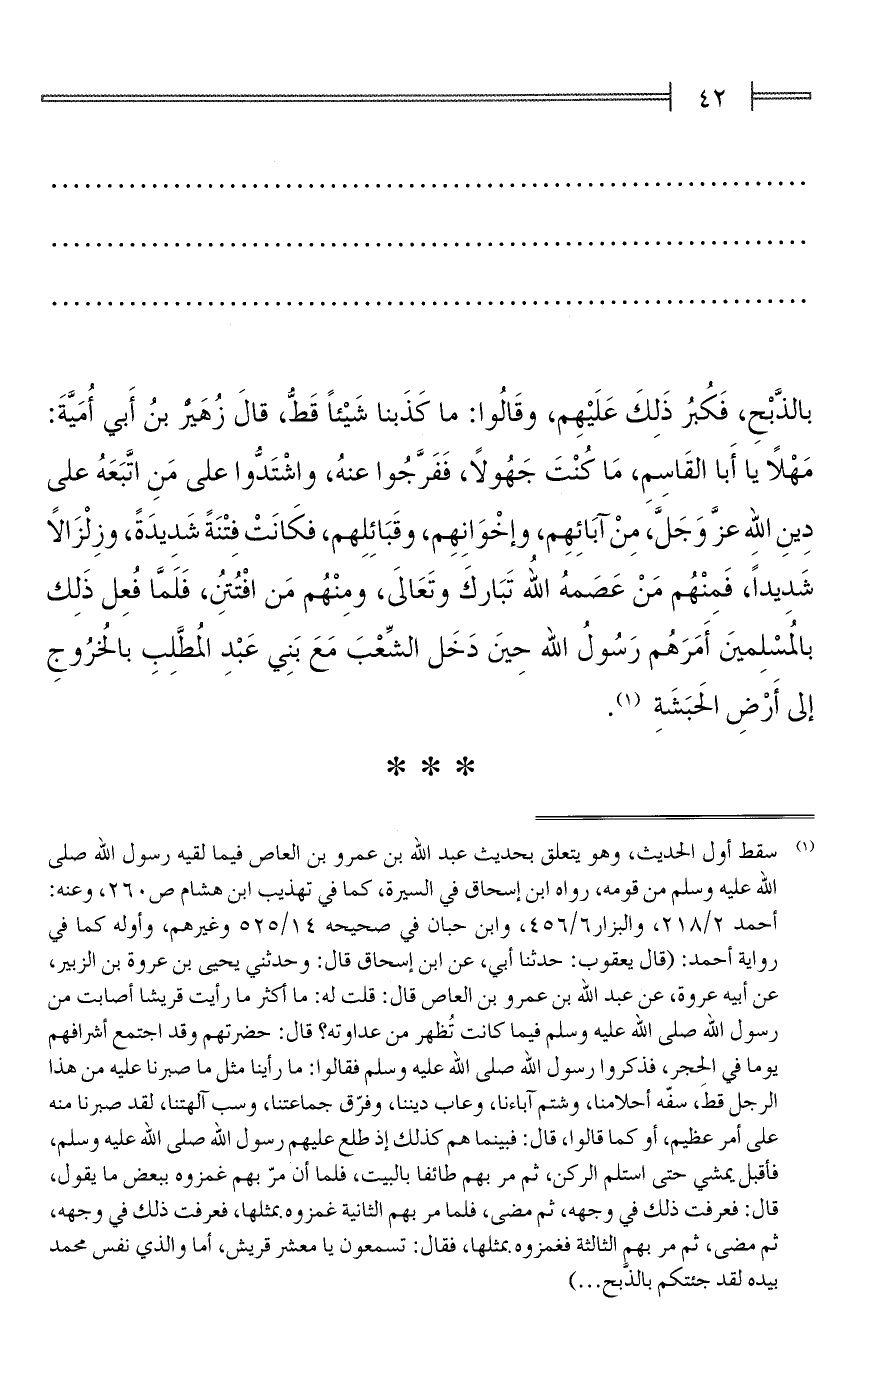 ٤٢
................................................................
................................................................
................................................................
بالذَّبْحِ، فَكَبُرُ ذَلِكَ عَلَيْهِم، وقَالُوا: ما كَذَبنا شَيْئاً قَطُّ، قالَ زُهَيْرُ بنُ أَبي أُمَيَّةَ:
مَهْلًا يا أبا القَاسِمِ، مَا كُنْتَ جَهُولًا، فَفَرَّجُوا عنهُ، واشْتَدُّوا على مَنِ اتَّبَعَهُ على
دِينِ اللهِ عزَّ وَجَلَّ، مِنْ آبَائِهِم، وإخْوَانِهِم، وقَبَائِلِهِم، فكَانَتْ فِتْنَةً شَدِيدَةً، وزِلْزَالاً
شَدِيداً، فَمِنْهُم مَنْ عَصَمهُ اللهُ تَبَاركَ وتَعَالَى، ومِنْهُم مَن افْتُتنُ، فَلَمَّا فُعل ذَلِك
بالمُسْلمِينَ أَمَرَهُم رَسُولُ الله حِينَ دَخَل الشِّعْبَ مَعَ بَنِي عَبْدِ المُطَّلبِ بالخرُوجِ
إلى أَرْضِ الحَبَشَةِ (١).
* * *
(١) سقط أول الحديث، وهو يتعلق بحديث عبد الله بن عمرو بن العاص فيما لقيه رسول الله صلى
الله عليه وسلم من قومه، رواه ابن إسحاق في السيرة، كما في تهذيب ابن هشام ص٢٦٠، وعنه:
أحمد ٢/ ٢١٨، والبزار٦/ ٤٥٦، وابن حبان في صحيحه ١٤/ ٥٢٥ وغيرهم، وأوله كما في
رواية أحمد: (قال يعقوب: حدثنا أبي، عن ابن إسحاق قال: وحدثني يحيى بن عروة بن الزبير،
عن أبيه عروة، عن عبد الله بن عمرو بن العاص قال: قلت له: ما أكثر ما رأيت قريشا أصابت من
رسول الله صلى الله عليه وسلم فيما كانت تُظهر من عداوته؟ قال: حضرتهم وقد اجتمع أشرافهم
يوما في الحِجر، فذكروا رسول الله صلى الله عليه وسلم فقالوا: ما رأينا مثل ما صبرنا عليه من هذا
الرجل قط، سفّه أحلامنا، وشتم آباءنا، وعاب ديننا، وفرّق جماعتنا، وسب آلهتنا، لقد صبرنا منه
على أمر عظيم، أو كما قالوا، قال: فبينما هم كذلك إذ طلع عليهم رسول الله صلى الله عليه وسلم،
فأقبل يمشي حتى استلم الركن، ثم مر بهم طائفا بالبيت، فلما أن مرّ بهم غمزوه ببعض ما يقول،
قال: فعرفت ذلك في وجهه، ثم مضى، فلما مر بهم الثانية غمزوه بمثلها، فعرفت ذلك في وجهه،
ثم مضى، ثم مر بهم الثالثة فغمزوه بمثلها، فقال: تسمعون يا معشر قريش، أما والذي نفس محمد
بيده لقد جئتكم بالذَّبح...)